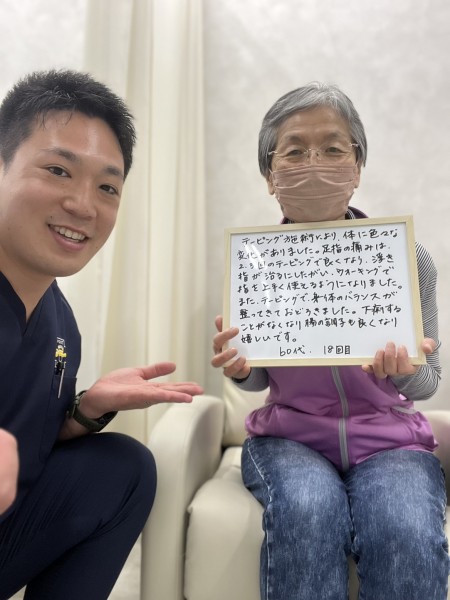 テーピング施術により、体に色々な
変化がありました。足指の痛みは、
2、3回のテーピングで良くなり、浮き
指が治るにしたがい、ウォーキングで
指を上手く使えるようになりました。
また、テーピングで、身体のバランスが
整ってきておどろきました。下痢する
ことがなくなり腸の調子も良くなり
嬉しいです。
60代、18回目